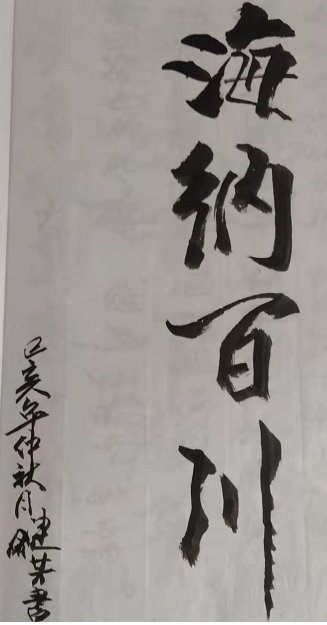 海纳百川
己亥年仲秋月建芬书